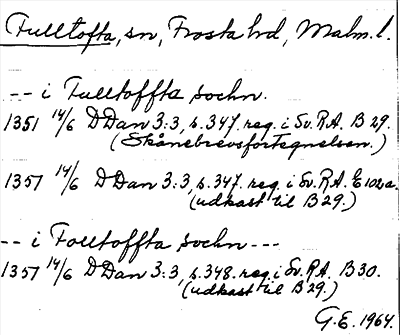 Fulltofta, sn, Frosta hd, Malm. l.
-- i Fulltoffta sochn.
1351 14/6 D Dan 3:3, s. 347. reg. i Sv. R.A. B 29.
(Skånebrevsfortegnelsen.)
1357 14/6 D Dan 3:3, s. 347. reg. i Sv. R.A. E 102a.
(udkast til B 29.)
-- i Foultoffta sochn ---
1357 14/6 D Dan 3:3, s. 348. reg. i Sv. R.A. B 30.
(udkast til B 29.)
G.E. 1964.